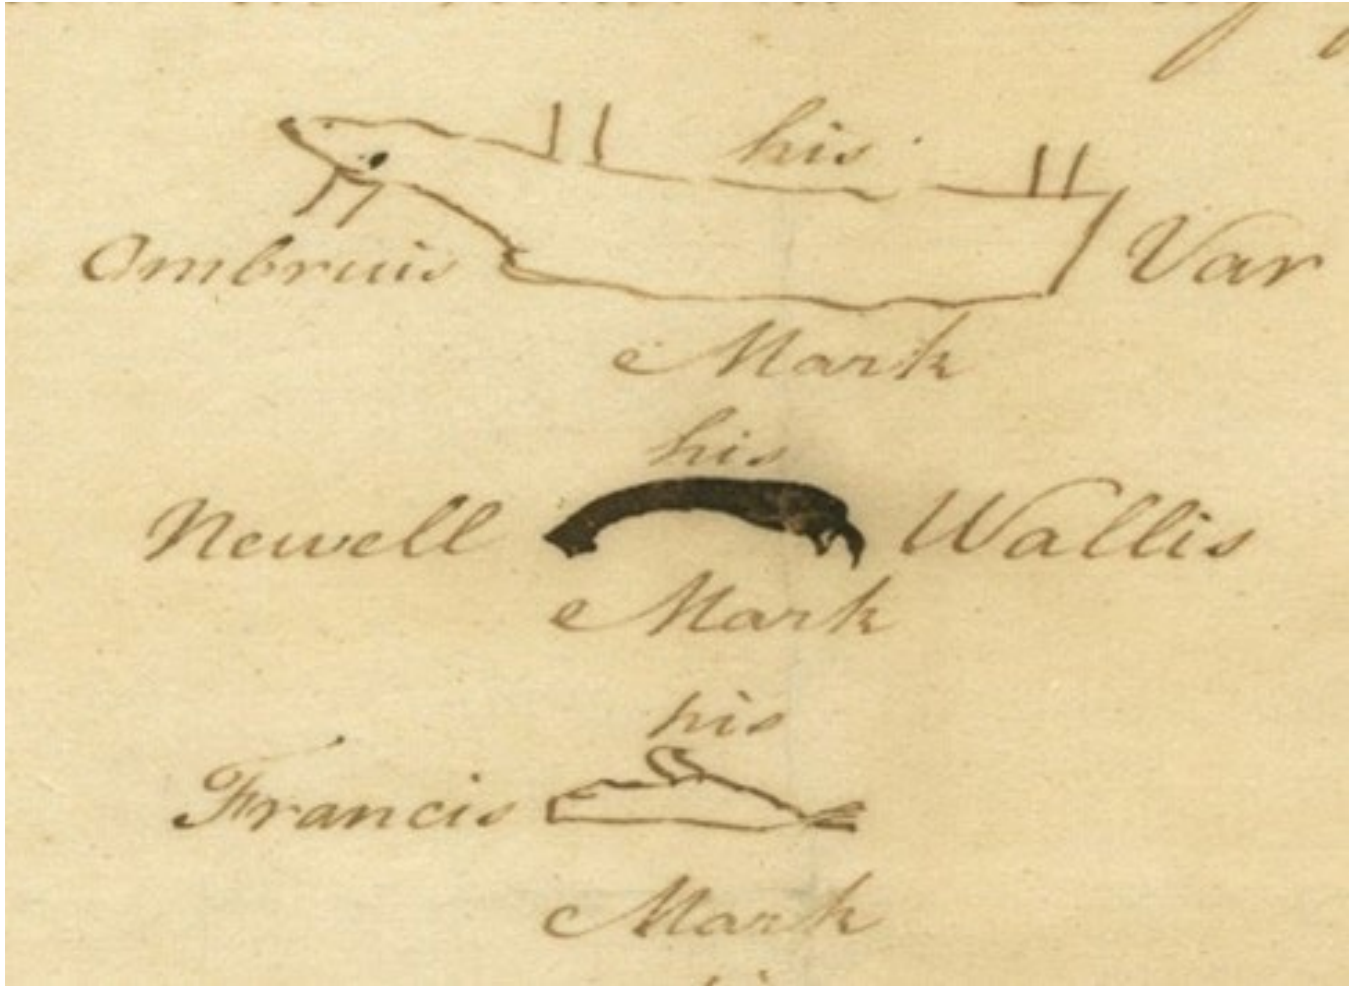 his
Ombruis Var
Mark
his
Newell Wallis
Mark
his
Francis
Mark